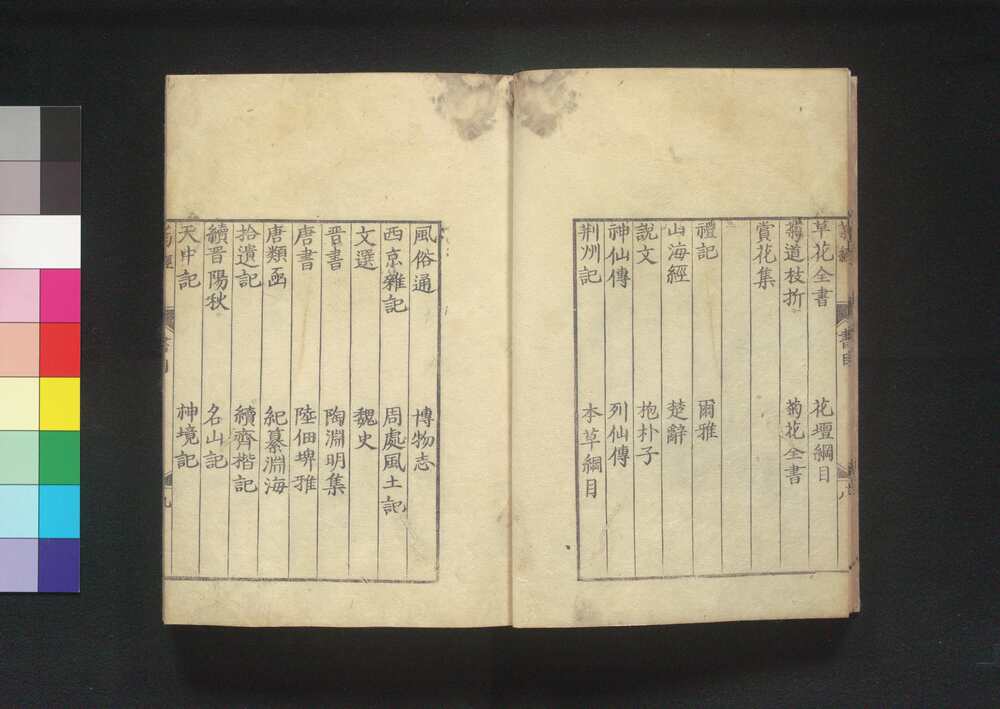 草花全書 花壇綱目
菊道枝折 菊花全書
賞花集
禮記 爾雅
山海經 楚辭
說文 抱朴子
神仙傳 列仙傳
荆州記 本草綱目
風俗通 博物志
西京雜記 周處風土記
文選 魏史
晋書 陶淵明集
唐書 陸佃埤雅
唐類函 紀纂淵海
拾遺記 續齊楷記
續晋陽秋 名山記
天中記 神境記
書目 九